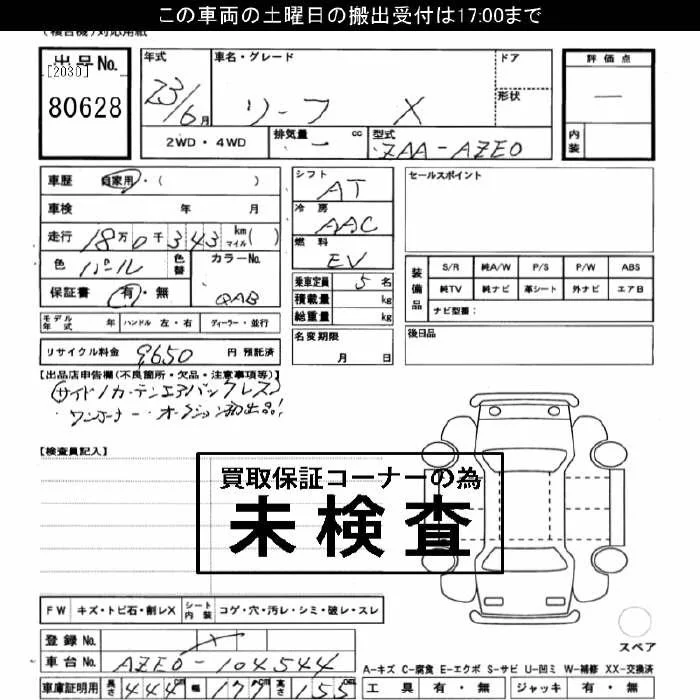 この車両の土曜日の搬出受付は17:00まで
(複合機)対応用紙
出品No. [2030] 80628
年式 23/6月 車名・グレード リーフ X ドア 形状
評価点 — 内装
2WD・4WD 排気量 — cc 型式 ZAA-AZE0
車歴 自家用・( )
車検 年 月
走行 18万0千343 km マイル( )
色 パール 色替 カラーNo. QAB
保証書 有・無
シフト AT
冷房 AAC
燃料 EV
乗車定員 5名
積載量 kg
総重量 kg
名変期限 月 日
セールスポイント
装備品 S/R 純A/W P/S P/W ABS
純TV 純ナビ 革シート 外ナビ エアB
ナビ型番:
後日品
モデル年式 年 ハンドル 左・右 ディーラー・並行
リサイクル料金 9650 円 預託済
【出品店申告欄(不良箇所・欠品・注意事項等)】
サイド/カーテンエアバックレス
・ワンオーナー・オークション初出品!
【検査員記入】
買取保証コーナーの為
未検査
FW キズ・トビ石・割レX シート内装 コゲ・穴・汚レ・シミ・破レ・スレ
登録No.
車台No. AZE0-104544
車庫証明用 長さ 444cm 幅 177cm 高さ 155cm
スペア
A-キズ C-腐食 E-エクボ S-サビ U-凹ミ W-補修 XX-交換済
工具 有・無 ジャッキ 有・無